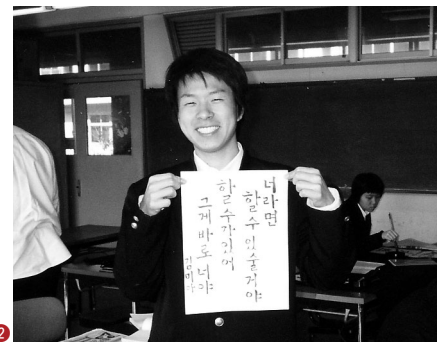 너라면
할 수 있을거야
할 수가 있어
그게 바로 너야
2